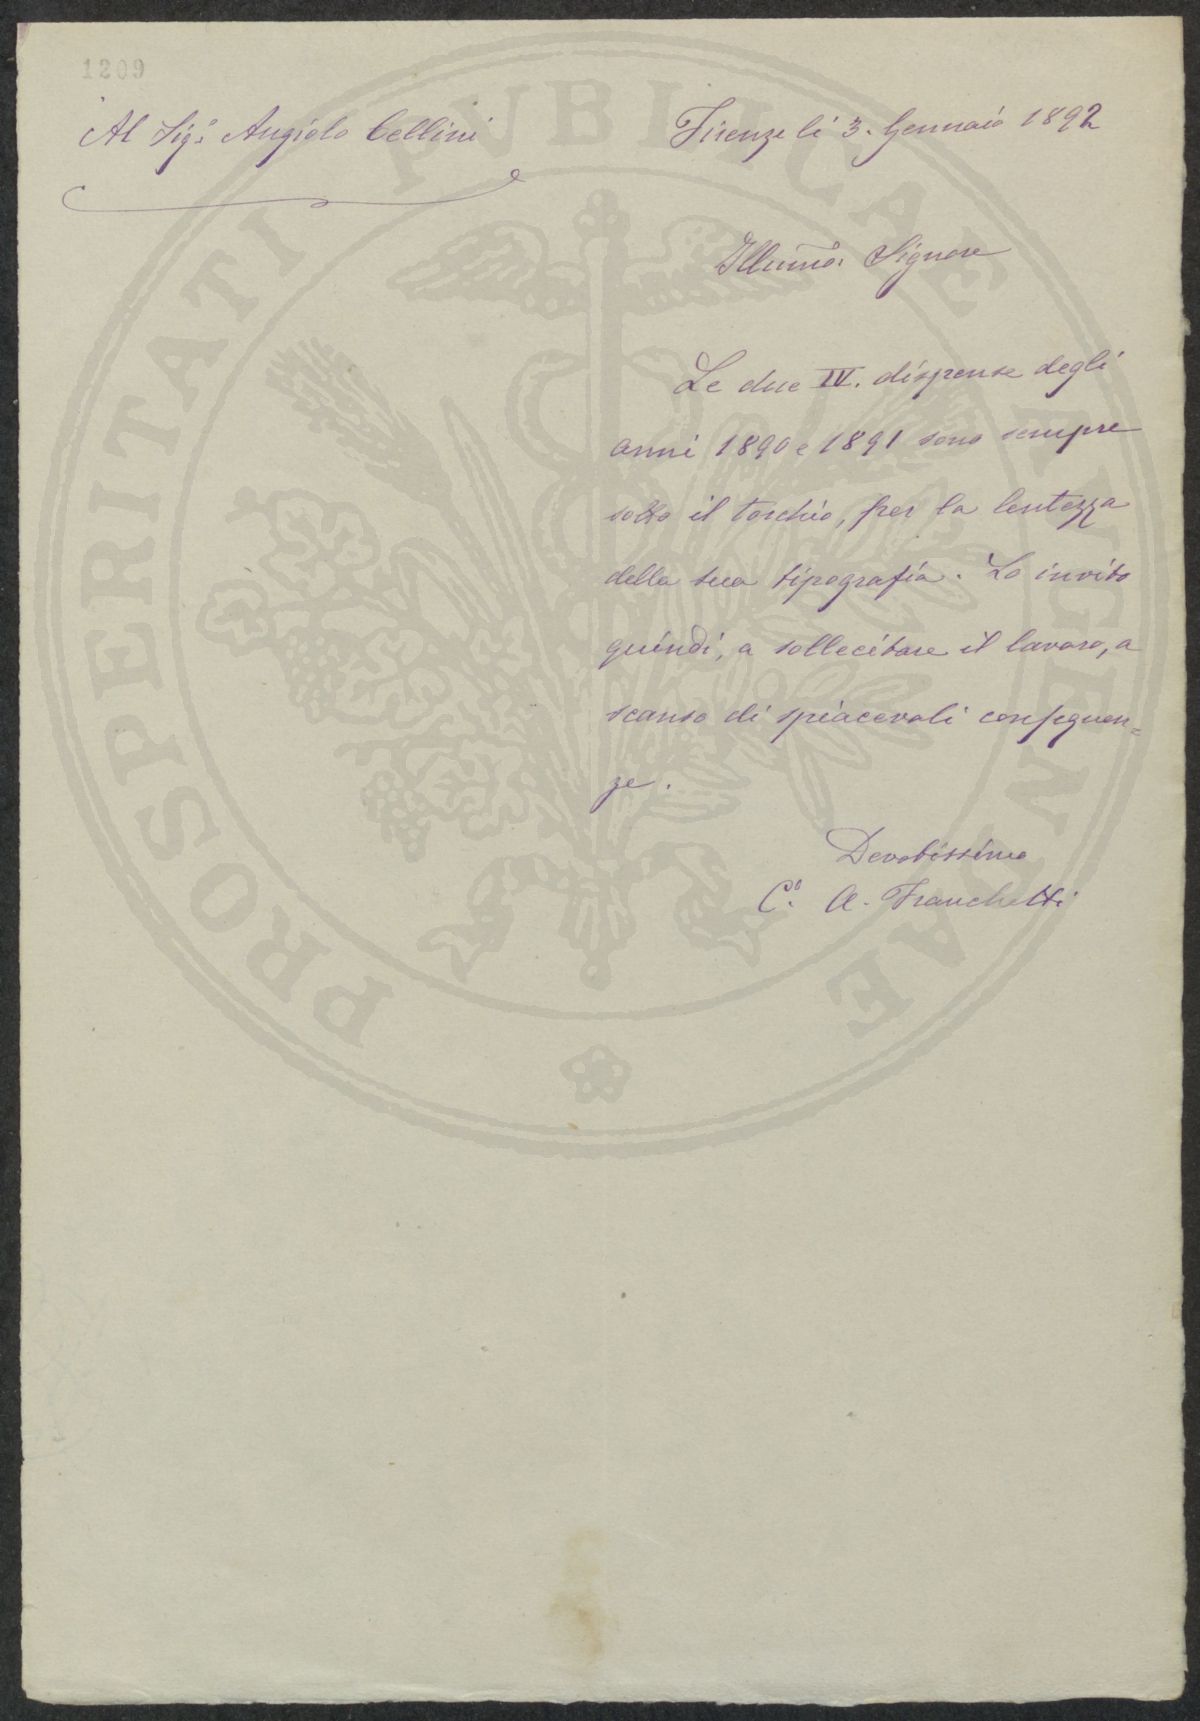 1209
Al Sigr. Angiolo Cellini
Firenze li 3. Gennaio 1892
Illumo. Signore
Le due IV. dispense degli
anni 1890 e 1891 sono sempre
sotto il torchio, per la lentezza
della sua tipografia. La invito
quindi, a sollecitare il lavoro, a
scanso di spiacevoli conseguen=
ze.
Devotissimo
Co. A. Franchetti
PROSPERITATI PVBLICAE AVGENDAE